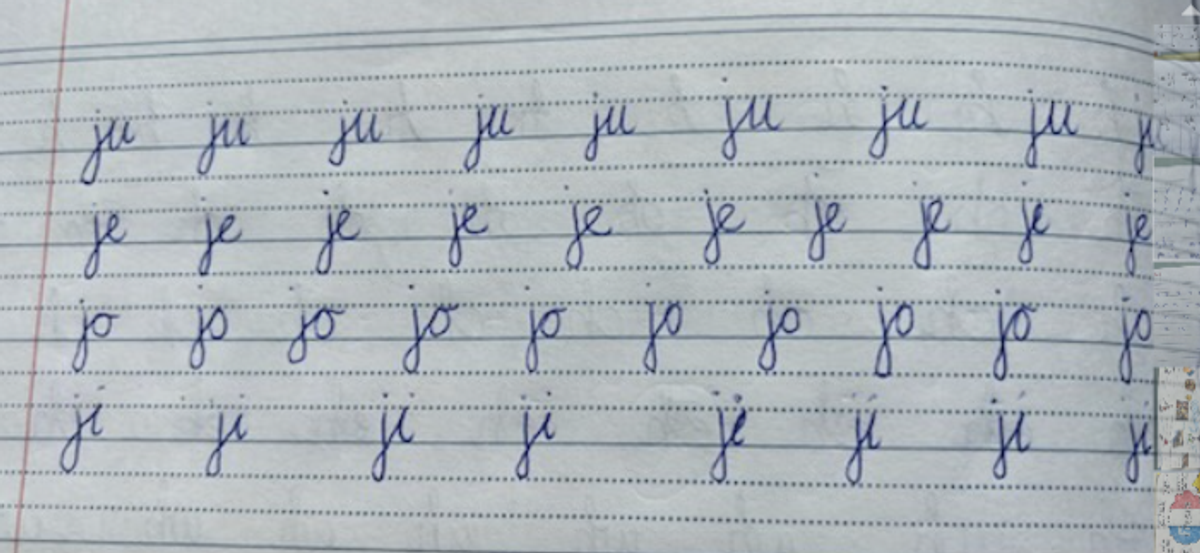 ju ju ju ju ju ju ju ju ju
je je je je je je je je je je
jo jo jo jo jo jo jo jo jo jo
ji ji ji ji ji ji ji ji